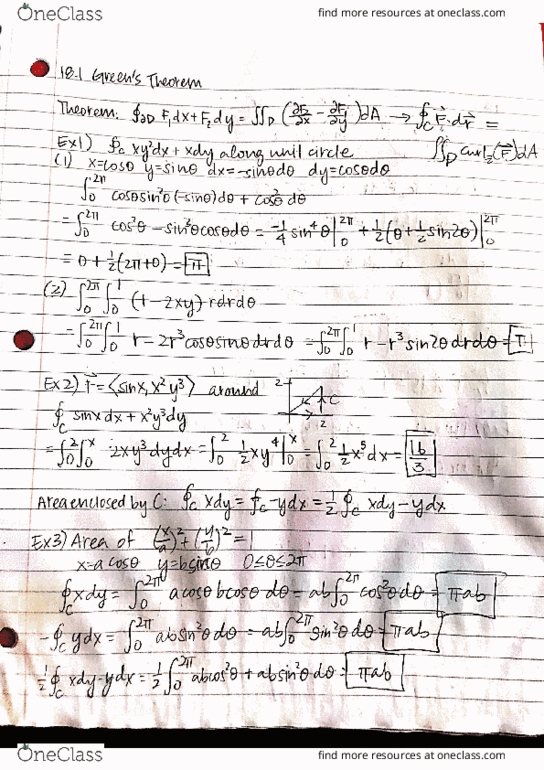 OneClass find more resources at oneclass.com
18.1 Green's Theorem
Theorem: ∮∂D F₁dx + F₂dy = ∬D (∂F₂/∂x - ∂F₁/∂y)dA → ∮C F⃗·dr⃗ =
∬D curl_z(F⃗)dA
Ex1) ∮C xy²dx + xdy along unit circle
(1) x=cosθ y=sinθ dx=-sinθdθ dy=cosθdθ
∫₀^2π cosθsin²θ(-sinθ)dθ + cos²θ dθ
= ∫₀^2π cos²θ - sin³θcosθdθ = -1/4 sin⁴θ|₀^2π + 1/2(θ+1/2 sin2θ)|₀^2π
= 0 + 1/2(2π+0) = π
(2) ∫₀^2π ∫₀^1 (1-2xy) rdrdθ
= ∫₀^2π ∫₀^1 r - 2r³cosθsinθdrdθ = ∫₀^2π ∫₀^1 r - r³sin2θdrdθ = π
Ex2) F⃗ = ⟨sinx, x²y³⟩ around 2 C 2
∮C sinxdx + x²y³dy
= ∫₀² ∫₀^x 2xy³dydx = ∫₀² 1/2 xy⁴|₀^x = ∫₀² 1/2 x⁵dx = 16/3
Area enclosed by C: ∮C xdy = ∮C -ydx = 1/2 ∮C xdy - ydx
Ex3) Area of (x/a)² + (y/b)² = 1
x=a cosθ y=bsinθ 0≤θ≤2π
∮C xdy = ∫₀^2π acosθbcosθ dθ = ab∫₀^2π cos²θdθ = πab
-∮C ydx = ∫₀^2π absin²θdθ = ab∫₀^2π sin²θdθ = πab
1/2∮C xdy-ydx = 1/2∫₀^2π abcos²θ + absin²θdθ = πab
OneClass find more resources at oneclass.com